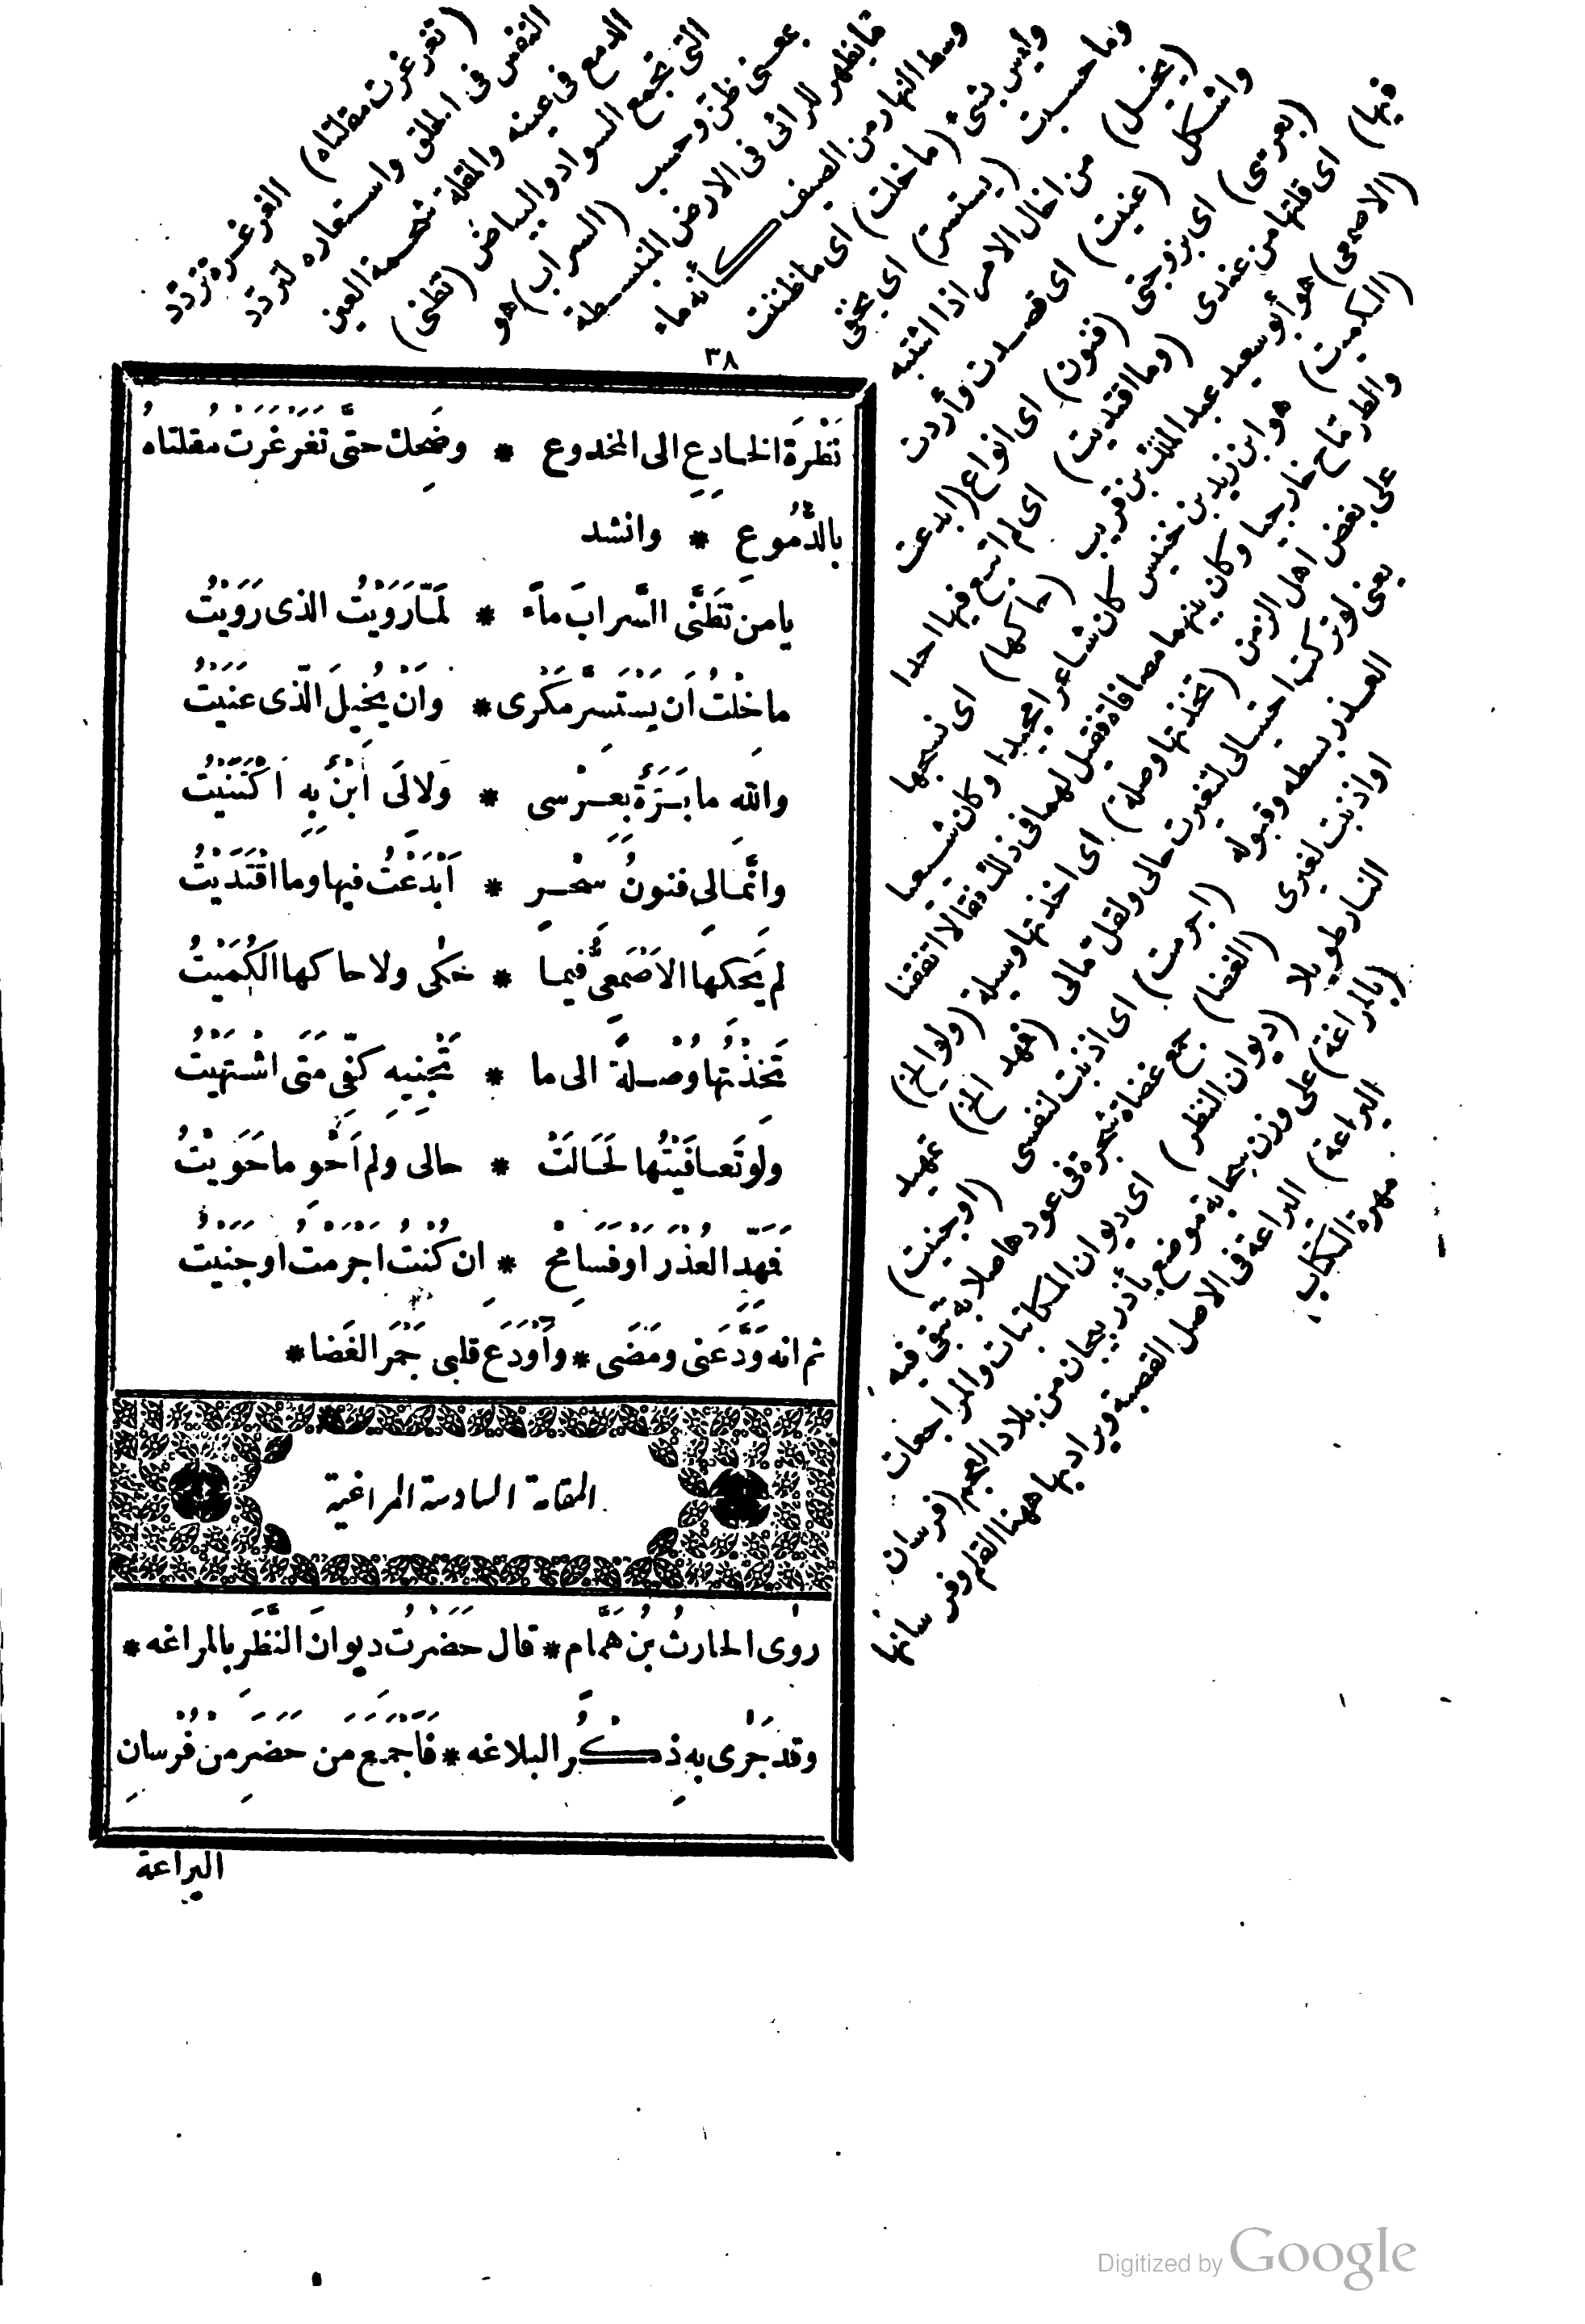 ٣٨
نَظْرَةَ الخادِعِ الى المخدوع * وضَحِكَ حتَّى تَغَرْغَرَتْ مُقلتاهُ
بالدُّمُوعِ * وانشد
يا من تَظَنَّى السَّرابَ ماءً * لَمَّا رَوَيْتُ الذى رَوَيْتُ
ما خِلْتُ اَن يَسْتَسِرَّ مَكْرى * وَاَنْ يُخيِلَ الَّذى عَنَيْتُ
واللهِ ما بَرَّةٌ بِعِرْسى * وَلا لِىَ ابْنٌ بِهِ اكْتَنَيْتُ
وانَّما لِى فنونُ سِحْرٍ * اَبْدَعْتُ فيها وما اقْتَدَيْتُ
لم يَحكِها الاَصْمَعِىُّ فيما * حَكٰى ولا حاكها الكُمَيْتُ
تَخِذْتُها وُصْلَةً الى ما * تَجْنِيهِ كَفِّى مَتَى اشْتَهَيْتُ
ولو تَعافَيْتُها لَحَالَتْ * حالى ولم اَحْوِ ما حَوَيْتُ
فَمَهِّدِ العُذْرَ اَوْ فَسَامِحْ * اِن كُنْتُ اَجْرَمْتُ او جَنَيْتُ
ثم انه وَدَّعَنى ومَضَى * وأَوْدَعَ قلبى جَمْرَ الغَضا *
المقامة السادسة المراغية
روٰى الحارثُ بنُ همَّام * قال حَضَرْتُ ديوانَ النَّظَرِ بالمراغه *
وقد جَرٰى به ذِكْرُ البلاغه * فَأَجْمَعَ مَن حَضَرَ مِنْ فُرْسانِ
اليراعة
(تغرغرت مقلتاه) الغرغرة تردّد
النفس فى الحلق واستعاره لتردّد
الدمع فى عينه والمقلة شحمة العين
التى تجمع السواد والبياض (تظنى)
بمعنى ظنّ وحسب (السراب) هو
ما يظهر للرائى فى الارض المنبسطة
وسط النهار من الصيف كأنه ماء
وليس بشئ (ما خلت) اى ما ظننت
وما حسبت (يستسر) اى يخفى
(يخيل) من اخال الامر اذا اشتبه
واشكل (عنيت) اى قصدت وأردت
(بعرسى) اى بزوجتى (فنون) اى انواع (ابدعت
فيها) اى قلتها من عندى (وما اقتديت) اى لم اتبع فيها احدا
(الاصمعى) هو أبو سعيد عبد الملك بن قريب (حاكها) اى نسجها
(الكميت) هو ابن زيد بن خنيس كان شاعرا مجيدا وكان شيعيا
والطرماح خارجيا وكان بينهما مصافاة فقيل لهما فى ذلك فقالا اتفقنا
على بغض اهل الزمن (تخذتها وصلة) اى اخذتها وسيلة (ولو الخ)
يعنى لو تركت احتيالى لتغيرت حالى ولقلّ مالى (فمهد الخ) تمهيد
العذر بسطه وقبوله (اجرمت) اى اذنبت لنفسى (او جنيت)
او اذنبت لغيرى (الغضا) جمع غضاة شجرة فى عودها صلابة تبقى فيه
النار طويلا (ديوان النظر) اى ديوان المكاتبات والمراجعات
(بالمراغة) على وزن سحابة موضع بأذربيجان من بلاد العجم (فرسان
اليراعة) اليراعة فى الاصل القصبة ويراد بها ههنا القلم وفرسانها
مهرة الكتاب
Digitized by Google